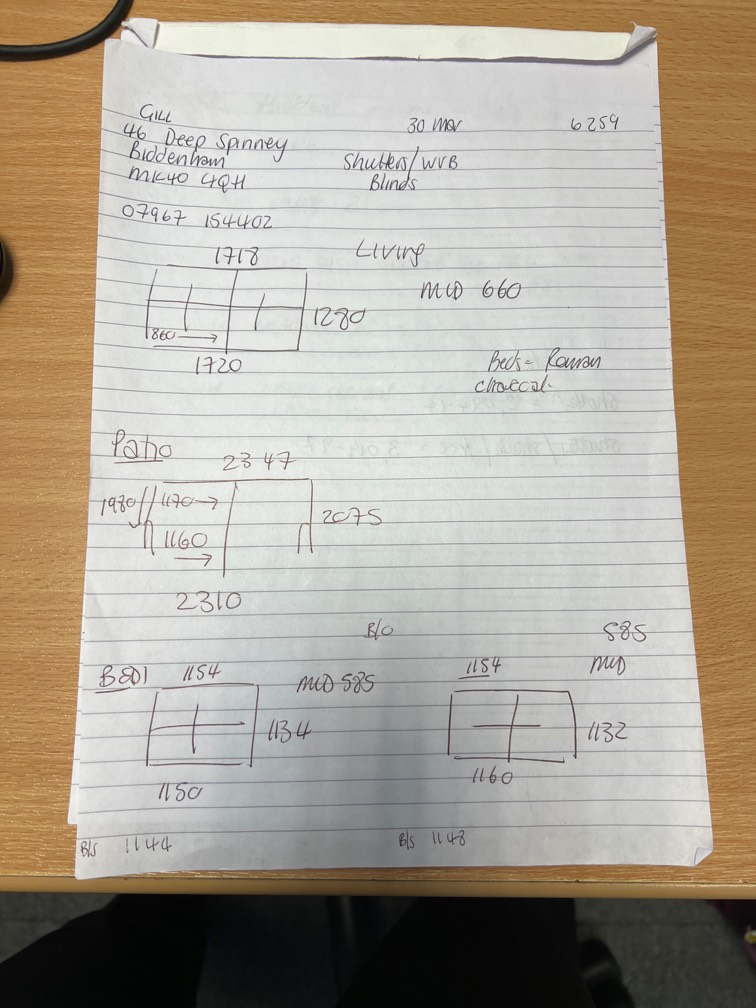 GILL
46 Deep Spinney
Biddenham
MK40 4QH
07967 154402
30 Mar
6259
Shutters/WVB
Blinds
Living
1718
MID 660
1280
860
1720
Beds = Roman
charcoal.
Patio
2347
1980
1170
2075
1160
2310
B/O
BED1
1154
MID 585
1134
1150
585
MID
1154
1132
1160
B/S 1144
B/S 1148